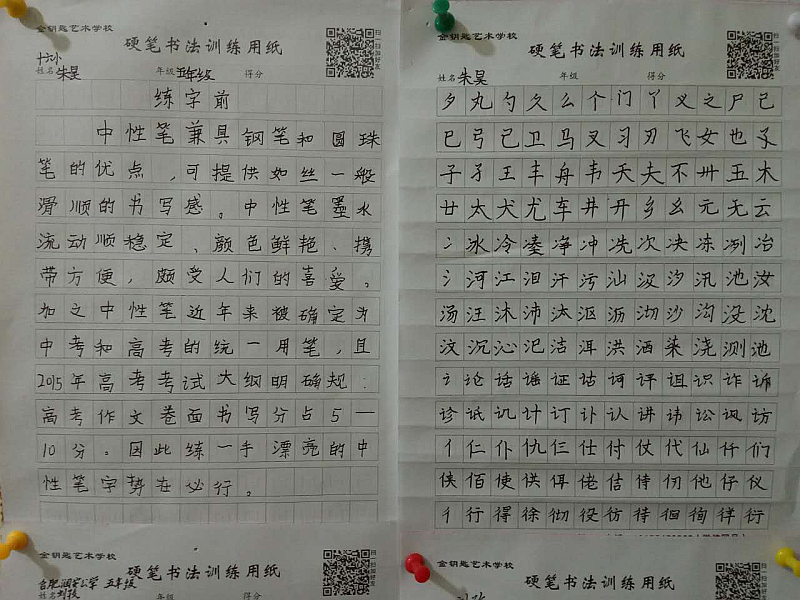 金钥匙艺术学校
硬笔书法训练用纸
扫一扫加好友
姓名 朱昊 年级 五年级 得分
练字前
中性笔兼具钢笔和圆珠
笔的优点,可提供如丝一般
滑顺的书写感。中性笔墨水
流动顺稳定、颜色鲜艳、携
带方便,颇受人们的喜爱。
加之中性笔近年来被确定为
中考和高考的统一用笔,且
2015年高考考试大纲明确规:
高考作文卷面书写分占5—
10分。因此练一手漂亮的中
性笔字势在必行。
金钥匙艺术学校
硬笔书法训练用纸
扫一扫加好友
姓名 朱昊 年级 得分
夕丸勺久么个门丫义之尸己
巳弓己卫马叉习刃飞女也孓
子孑王丰舟韦天夫不卅五木
廿太犬尤车井开乡幺元无云
冫冰冷凌净冲冼次决冻冽冶
氵河江汨汗污汕汲汐汛池汝
汤汪沐沛汰沤沥沏沙沟没沈
汶沉沁汜洁洱洪洒染浇测池
讠论话谣证诂诃评诅识诈诉
诊诋讥计订讣认讲讳讼讽访
亻仁仆仇仨仕付仗代仙仟们
侠佰使供佴佬佶侍仞他仔仪
彳行得徐彻役彷待徊徇徉衍
金钥匙艺术学校
硬笔书法训练用纸
五年级
姓名 年级 得分
金钥匙艺术学校
硬笔书法训练用纸
姓名 年级 得分